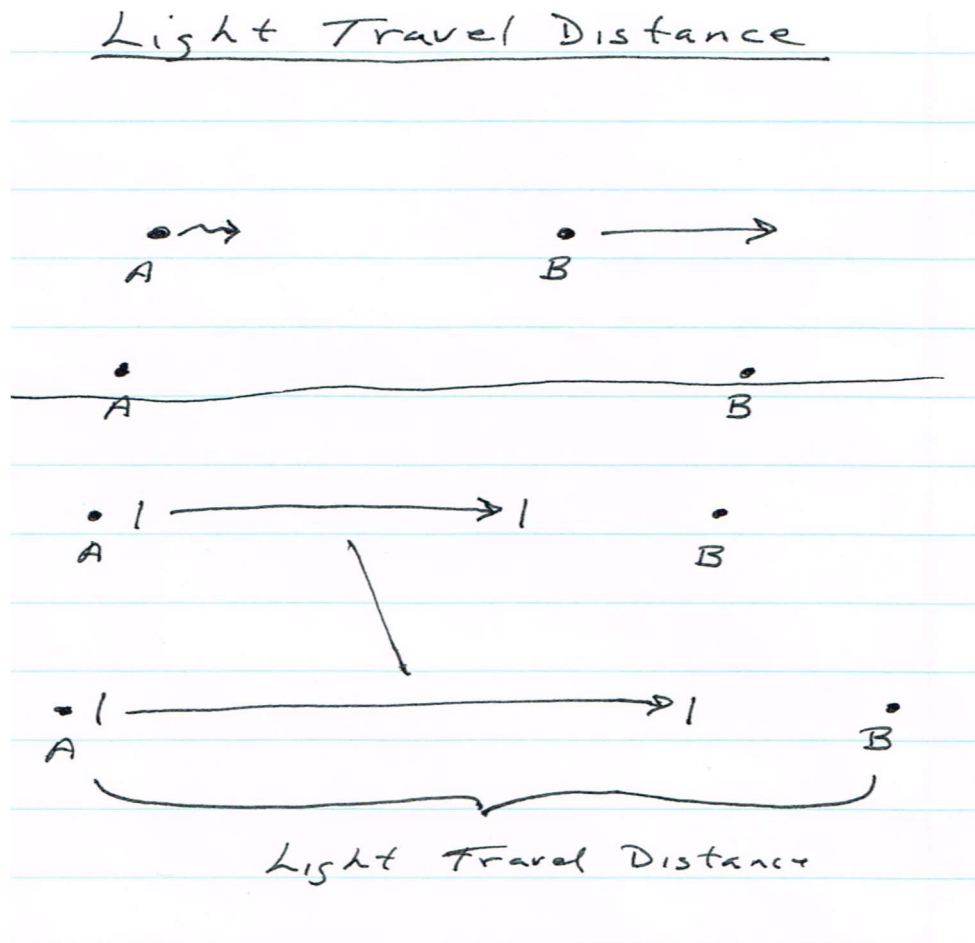 Light Travel Distance
A B
A B
A B
A B
Light Travel Distance